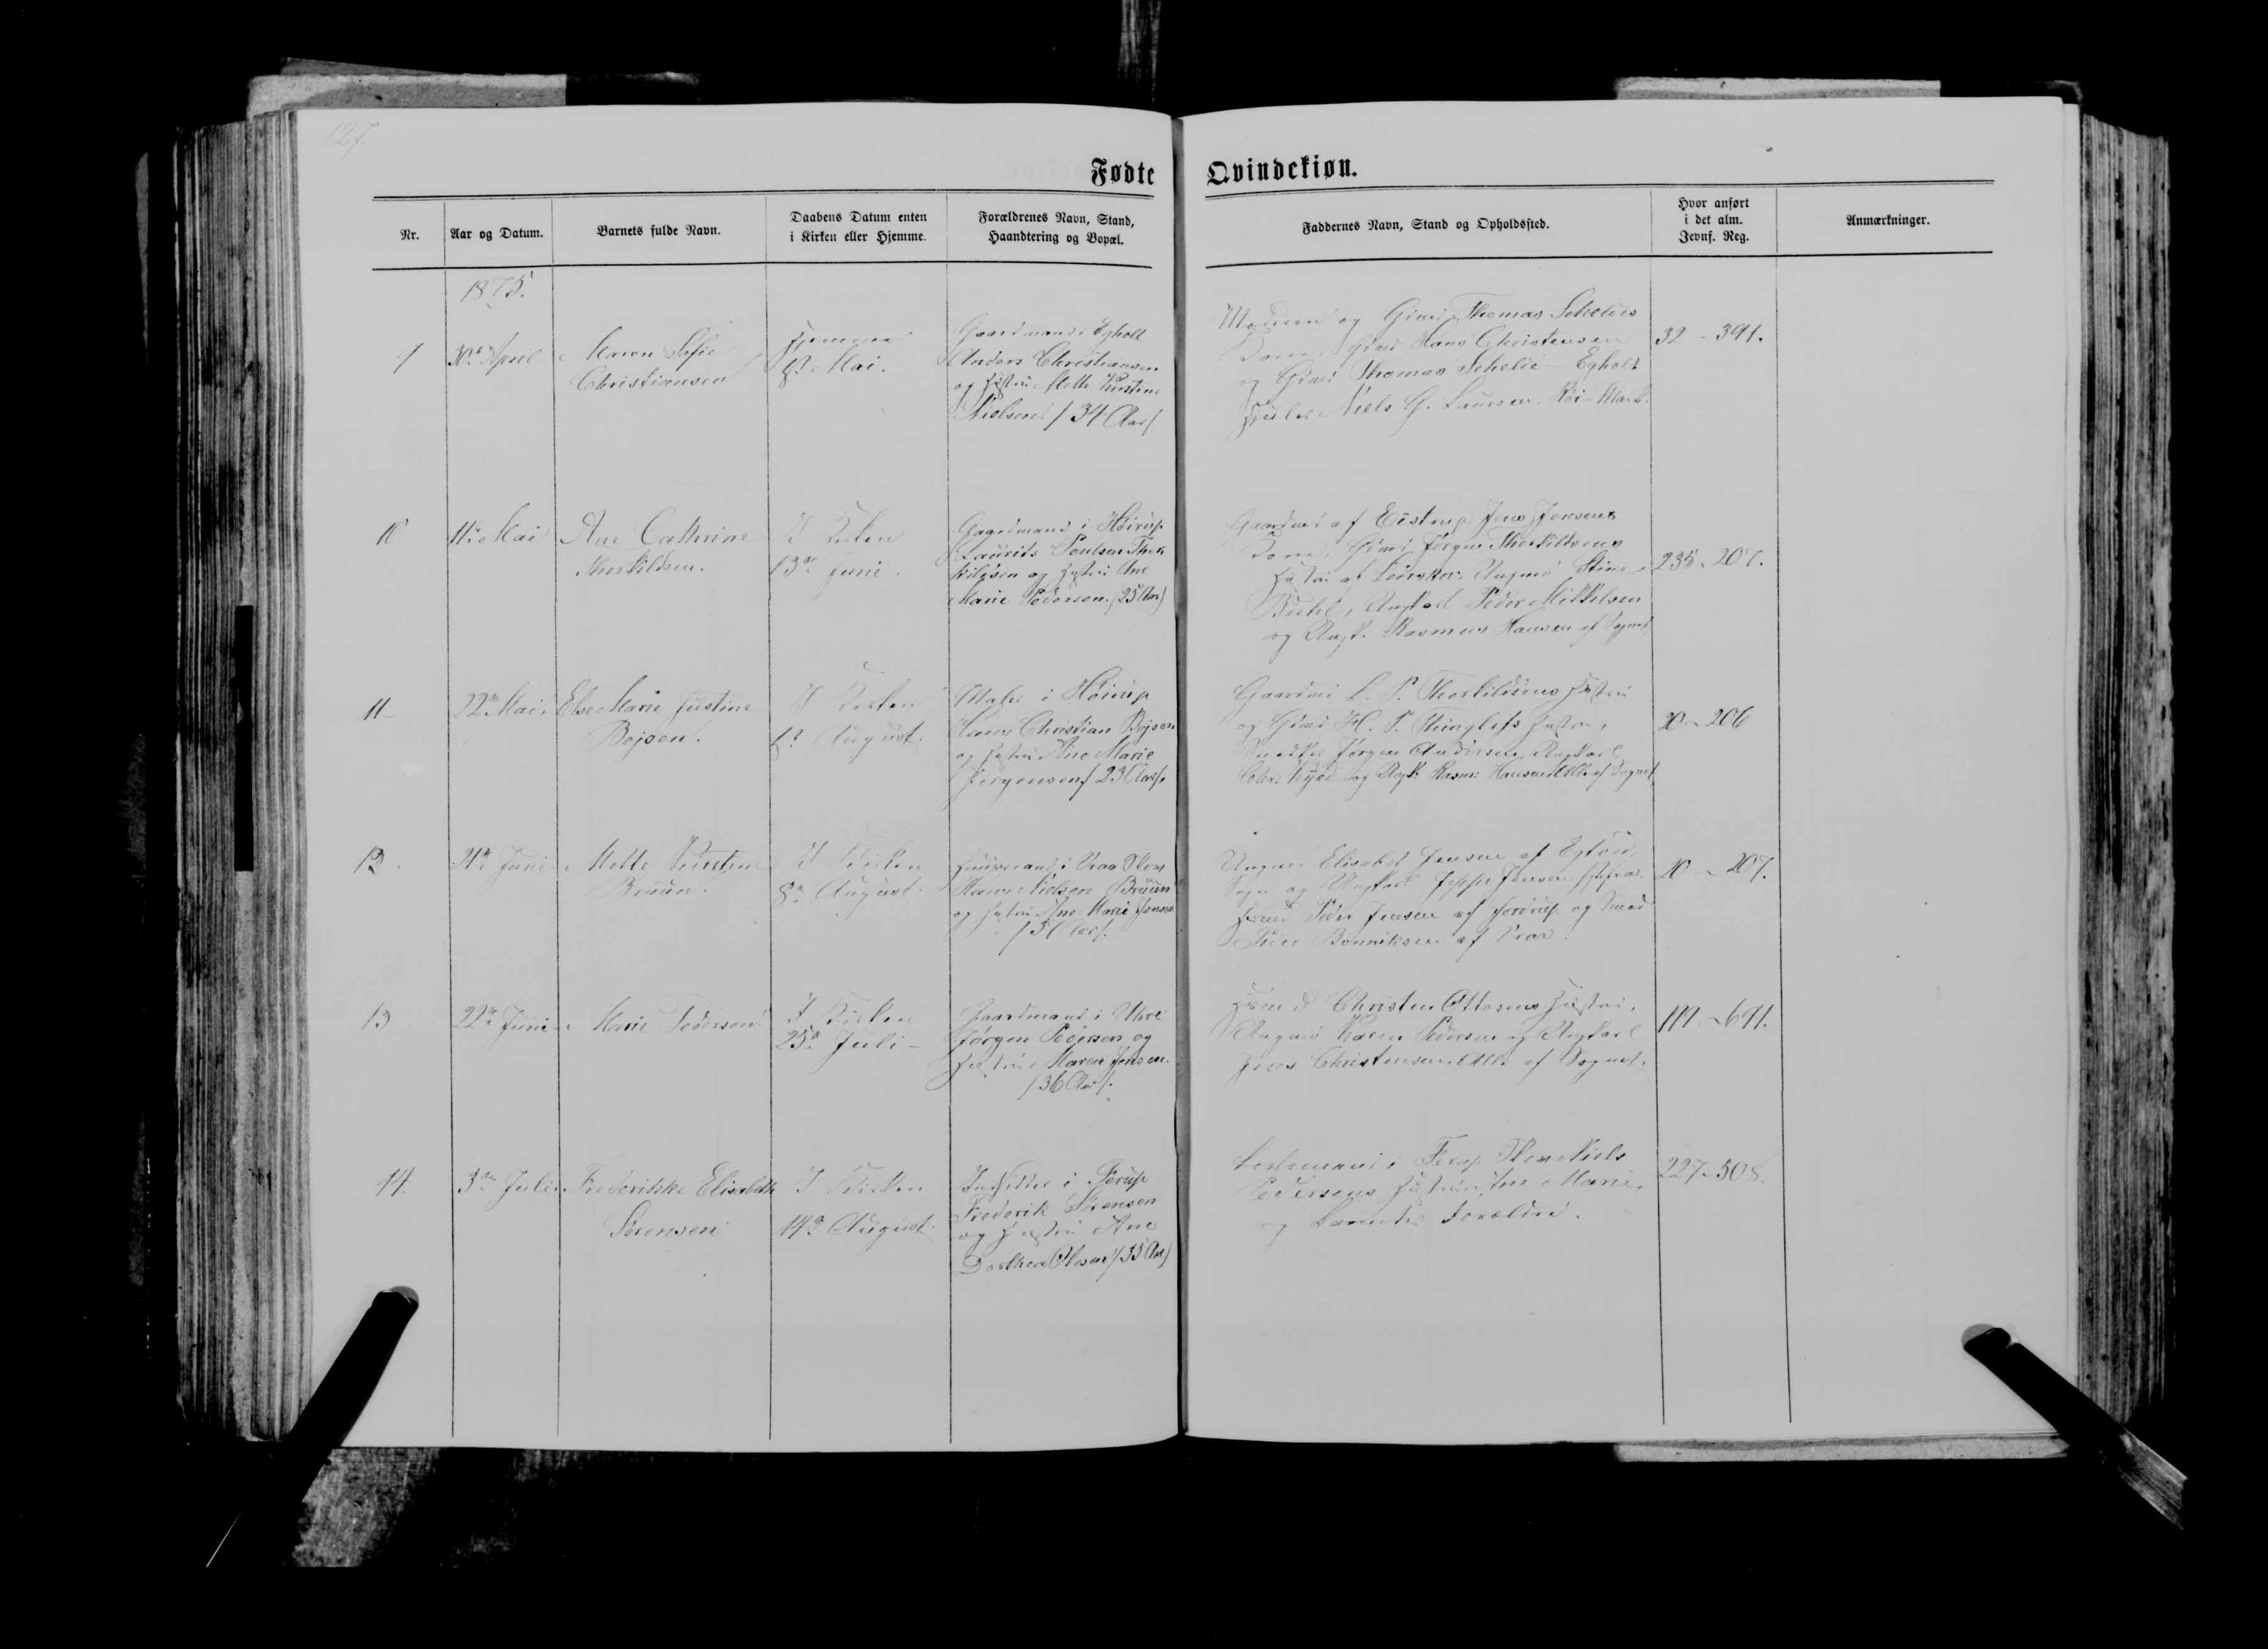 127
Fødte Qvindekiøn.
Nr.
Aar og Datum.
Barnets fulde Navn.
Daabens Datum enten
i Kirken eller Hjemme.
Forældrenes Navn, Stand,
Haandtering og Bopæl.
Faddernes Navn, Stand og Opholdssted.
Hvor anført
i det alm.
Jevnf. Reg.
Anmærkninger.
1875.
9
30te April
Maren Sofie
Christiansen
Hjemme
8de Mai.
Gaardmand i Egholt
Anders Christiansen
og Hustru Mette Kirstine
Nielsen / 34 Aar /
Moderen og Gmd Thomas Scheldes
Kone, Gmd Hans Christensen
og Gmd Thomas Schelde Egholt
Niels G. Laursen
32 - 391.
10
11te Mai
Ane Cathrine
Thorkildsen.
I Kirken
13de Juni.
Gaardmand i Høirup
Laurits Poulsen Thor-
kildsen og Hustru Ane
Marie Pedersen. (25 Aar)
Gaardmd af Eistrup Jens Jensens
Kone, Gmd Jørgen Thorkildsens
Hustru af Ungmø Stine
Buhl, Ungkarl Peder Mikkelsen
og Ungk. Rasmus Hansen af Sognet
235 - 207.
11
22de Mai.
Else Marie Justine
Bojsen.
I Kirken
1ste August.
Maler i Høirup
Hans Christian Bojsen
og Hustru Ane Marie
Jørgensen / 23 Aar /.
Gaardmd L. P. Thorkildsens Hustru
og Gmd H. P. Hustru,
Snedker Jørgen Andersen, Ungkarl
Chr. og Ungk. Rasm: Hansen Alle af Sognet
20 - 206
12
21de Juni
Mette Kirstine
Bruun.
I Kirken
8de August.
Huusmand i Vraa Skov
Hans Nielsen Bruun
og Hustru Ane Marie Jensen
Ungmø Elisabet Jensen af Egtved
Sogn og Ungkarl Jeppe Jensen
Huusmd Peder Jensen af Hjordrup og Smed
Bonniksen af Vraa.
20 - 207.
13
22de Juni
Marie Pedersen
I Kirken
25de Juli
Gaardmand i Uhre
Jørgen Pedersen og
Hustru Maren Jensen.
/ 36 Aar /.
Huusmd Christen Ottosens Hustru,
Ungmø Karen Pedersen og Ungkarl
Jens Christensen. Alle af Sognet.
119 - 691.
14.
3die Juli
Frederikke Elisabeth
Sørensen
I Kirken
14de August.
Indsidder i Ferup
Frederik Sørensen
og Hustru Ane
Dorthea Olesen / 33 Aar)
i Ferup Skov Niels
Pedersens Hustru Ane Marie,
og Barnets Forældre.
227 - 508.